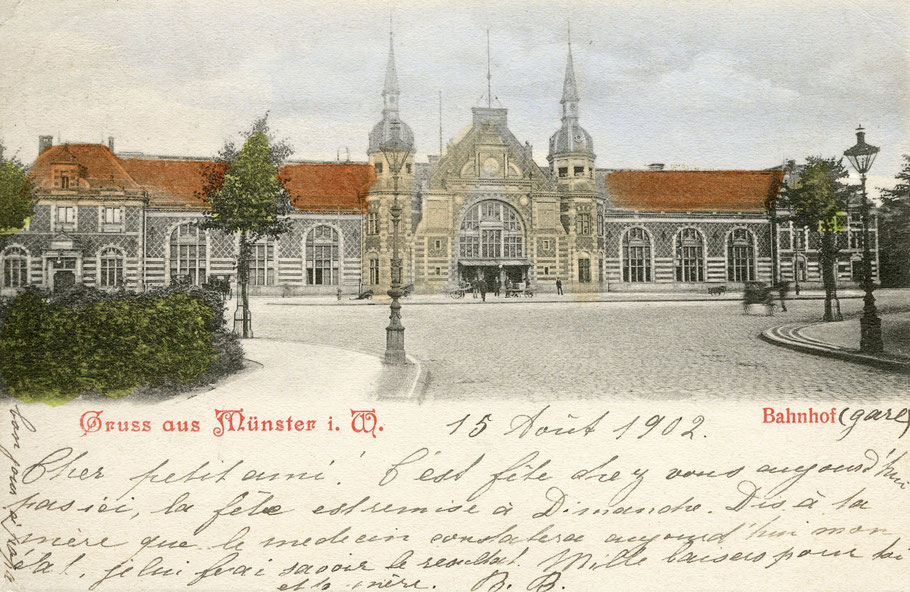 Gruss aus Münster i. W.
15 Août 1902.
Bahnhof (gare)
Cher petit ami! C'est fête chez vous aujourd'hui
pas ici, la fête est remise à Dimanche. Dis à ta
mère que le medecin constatera aujourd'hui mon
état, je lui ferai savoir le resultat. Mille baisers pour toi
et ta mère. B. B.